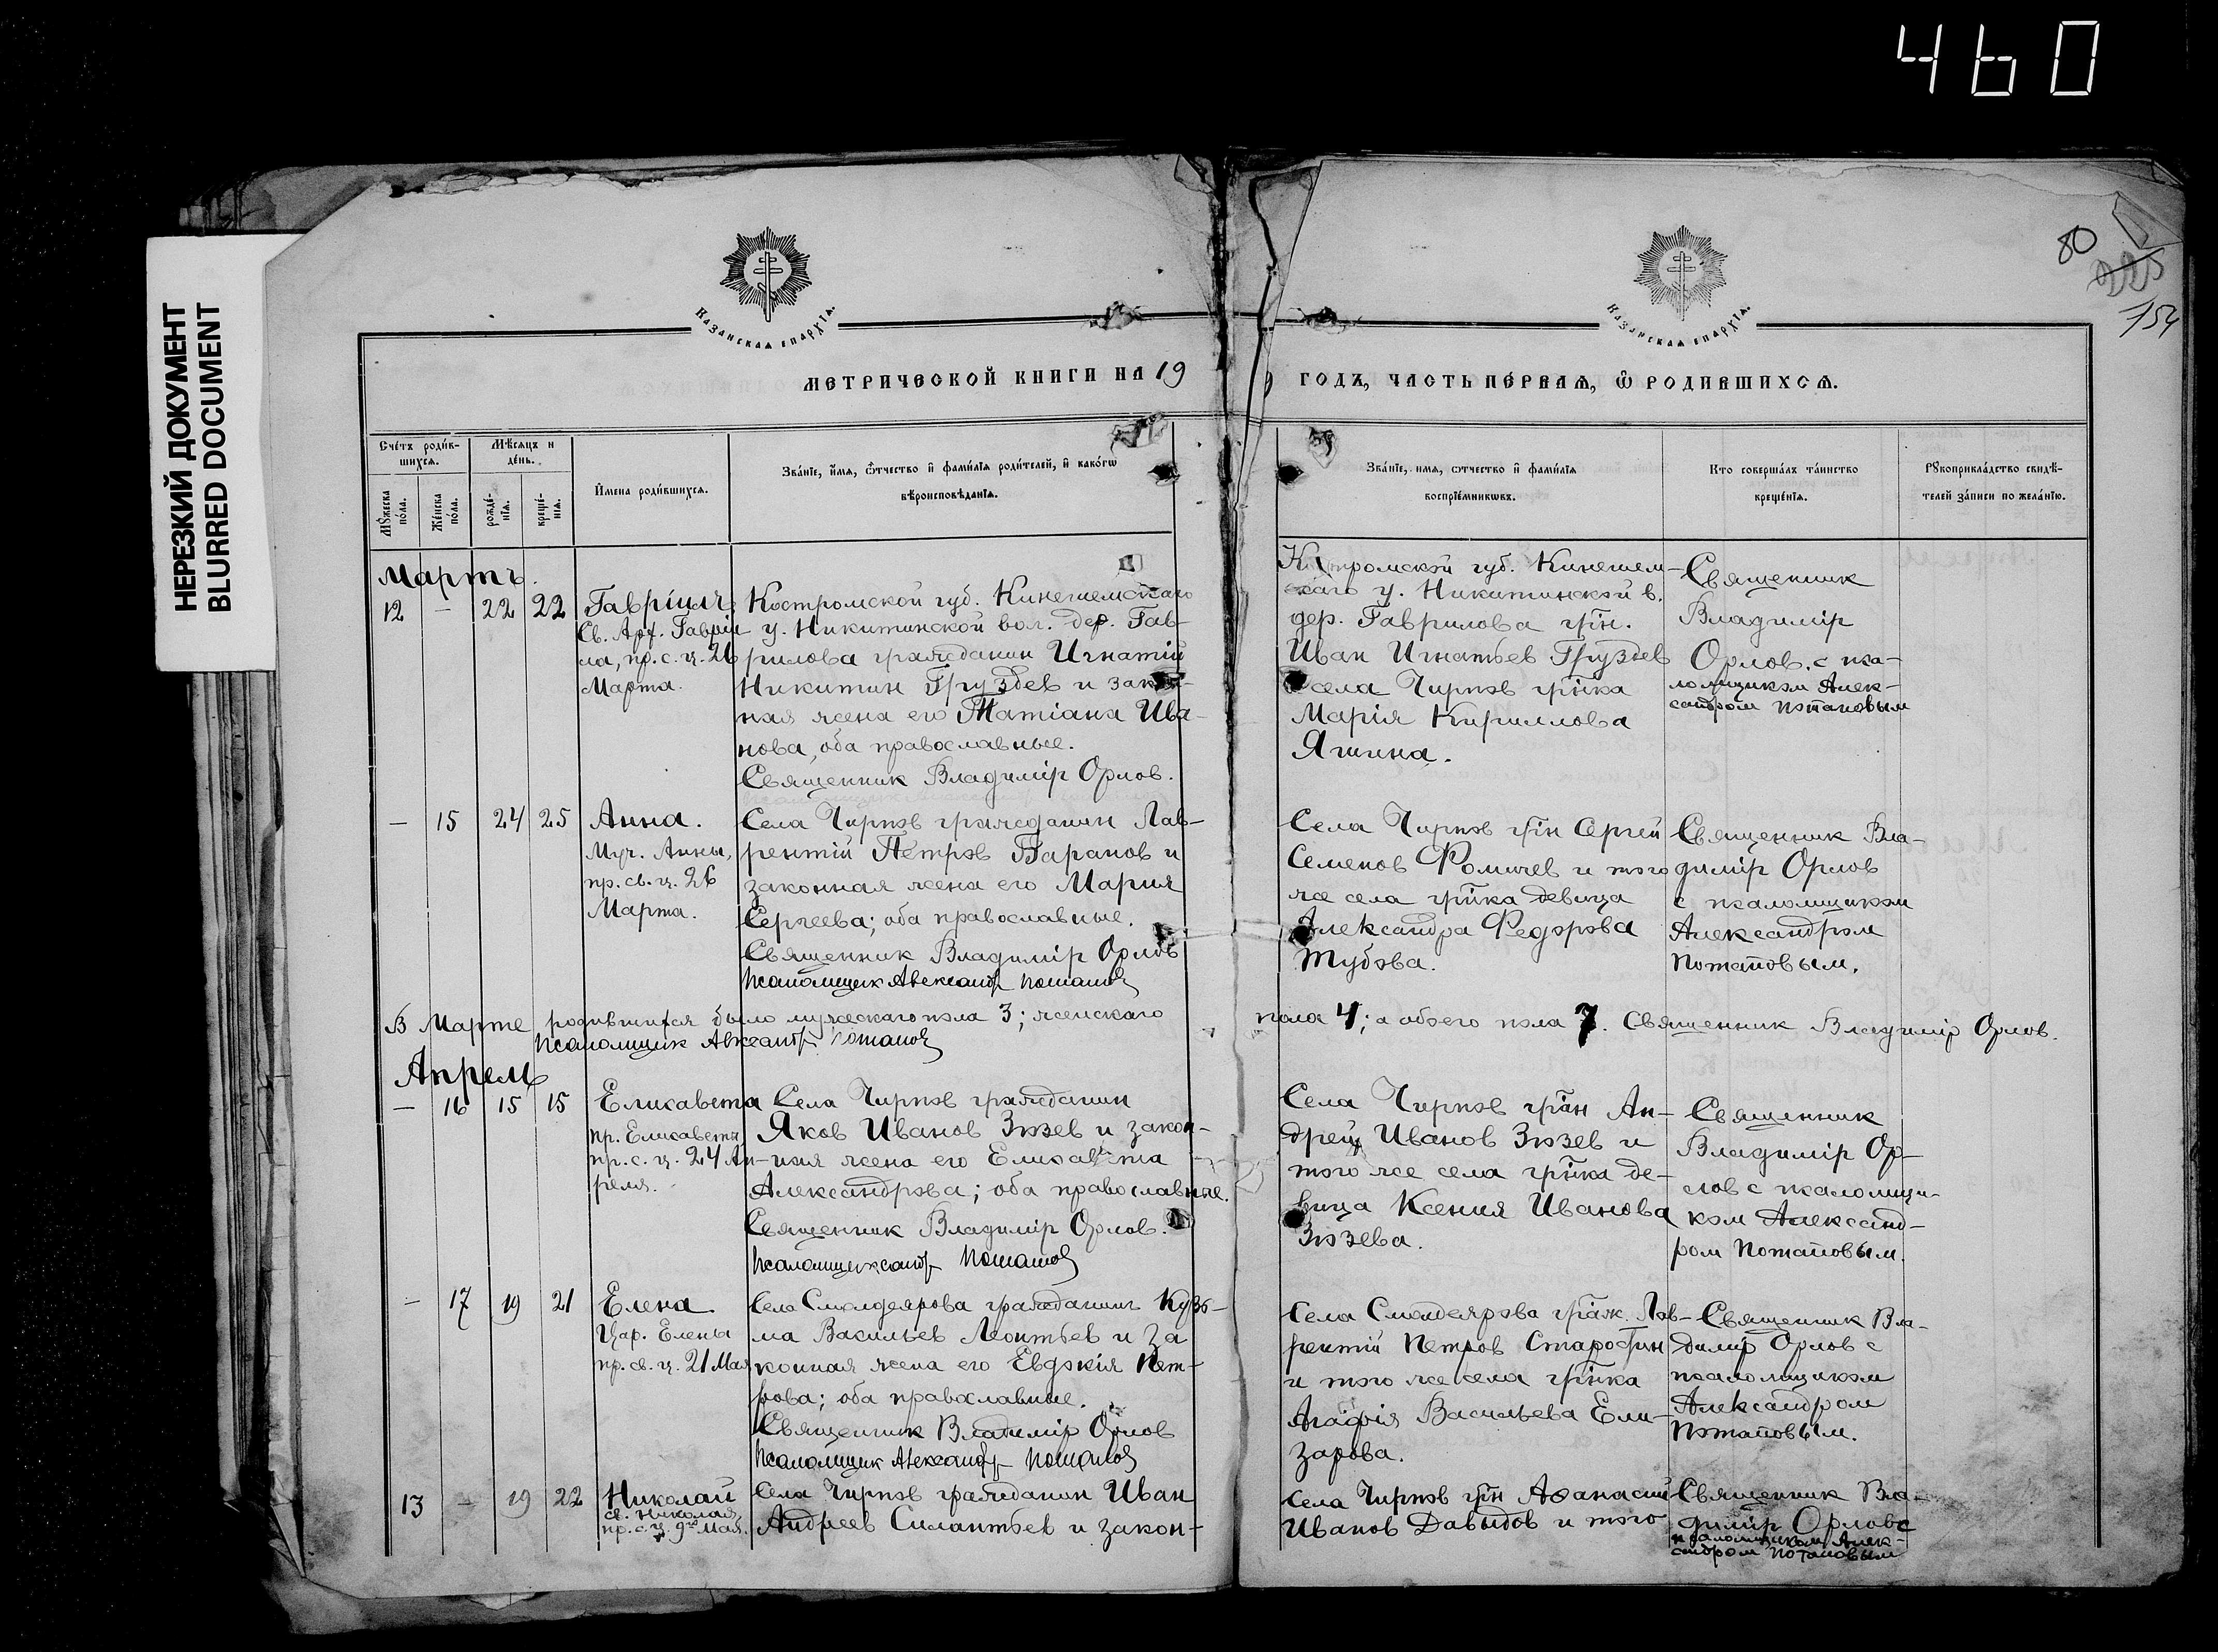 460
НЕРЕЗКИЙ ДОКУМЕНТ
BLURRED DOCUMENT
80
225
154
Казанская епархія.
Казанская епархія.
МЕТРИЧЕСКОЙ КНИГИ НА 19
ГОДЪ, ЧАСТЬ ПЕ́РВАѦ, Ѿ РОДИВШИХСѦ.
Сче́тъ роди́вшихся.
Мѣсяцъ и де́нь.
Мꙋ́жеска по́ла.
Же́нска по́ла.
рожде́нія.
креще́нія.
И́мена роди́вшихся.
Зва́ніе, и́мя, ѻ́тчество и҆ фами́лія роди́телей, и҆ како́гѡ
вѣроисповѣ́данія.
Зва́ніе, имя, ѻтчество и҆ фами́лія
воспріе́мникѡвъ.
Кто соверша́лъ та́инство
креще́нія.
Рꙋкоприкла́дство свидѣ́-
телей за́писи по жела́нію.
Мартъ.
12 — 22 22
Гавріилъ
Св. Арх. Гавріи-
ла, пр. с. ц. 26
Марта.
Костромской губ. Кинешемскаго
у. Никитинской вол. дер. Гав-
рилова гражданин Игнатій
Никитин Груздев и закон-
ная жена его Татіана Ива-
нова, оба православные.
Священник Владимір Орлов.
Костромской губ. Кинешем-
скаго у. Никитинской в.
дер. Гаврилова гр̃н.
Иван Игнатьев Груздев
и села Чирков гр̃нка
Марія Кириллова
Яшина.
Священник
Владимір
Орлов, с пса-
ломщиком Алек-
сандром Потаповым
— 15 24 25
Анна.
Муч. Анны,
пр. св. ц. 26
Марта.
Села Чирков гражданин Лав-
рентій Петров Баранов и
законная жена его Мария
Сергеева; оба православные.
Священник Владимір Орлов
Псаломщик Александр Потапов
Села Чирков гр̃н Сергей
Семенов Фомичев и того
же села гр̃нка девица
Александра Федорова
Тубова.
Священник Вла-
димір Орлов
с псаломщиком
Александром
Потаповым.
В Марте родившихся было мужескаго пола 3; женскаго
пола 4; а обоего пола 7. Священник Владимір Орлов.
Псаломщик Александр Потапов
Апрель
— 16 15 15
Елисавета
пр. Елисаветы,
пр. с. ц. 24 Ап-
реля.
Села Чирков гражданин
Яков Иванов Зюзев и закон-
ная жена его Елисавета
Александрова; оба православные.
Священник Владимір Орлов.
Псаломщик Потапов
Села Чирков гр̃ан Ан-
дрей Иванов Зюзев и
того же села гр̃нка де-
вица Ксения Иванова
Зюзева.
Священник
Владимір Ор-
лов с псаломщи-
ком Александ-
ром Потаповым.
— 17 19 21
Елена.
Цар. Елены
пр. св. ц. 21 Мая
Села Смолдеярова гражданин Кузь-
ма Васильев Леонтьев и за
конная жена его Евдокія Пет-
рова; оба православные.
Священник Владимір Орлов
Псаломщик Александр Потапов
Села Смолдеярова граж. Лав-
рентій Петров Старостин
и того же села гр̃нка
Агафія Васильева Ели-
зарова.
Священник Вла-
димір Орлов с
псаломщиком
Александром
Потаповым.
13 — 19 22
Николай
св. Николая,
пр. с. ц. 9го Мая.
Села Чирков гражданин Иван
Андреев Силантьев и закон-
Села Чирков гр̃н Афанасий
Иванов Давыдов и того
Священник Вла-
димір Орлов с
псаломщиком Алек-
сандром Потаповым